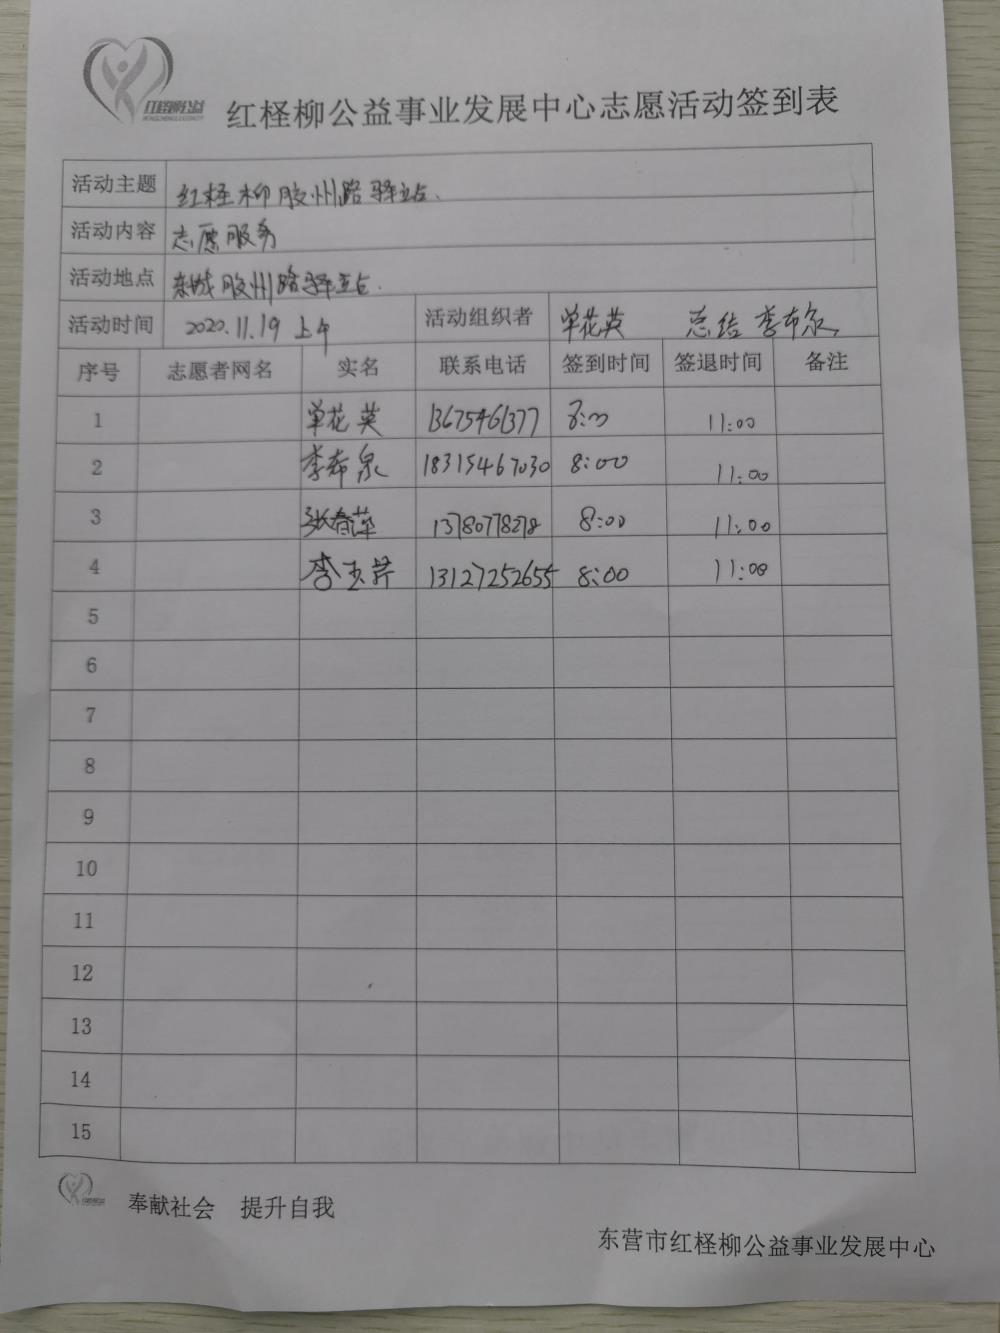 红柽柳公益
红柽柳公益事业发展中心志愿活动签到表
活动主题 红柽柳胶州路驿站.
活动内容 志愿服务
活动地点 东城胶州路驿站.
活动时间 2020.11.19 上午 活动组织者 单花英 总结 李希泉
序号 志愿者网名 实名 联系电话 签到时间 签退时间 备注
1 单花英 13675461377 8:00 11:00
2 李希泉 18315467030 8:00 11:00
3 张春萍 13780778278 8:00 11:00
4 李玉芹 13127252655 8:00 11:00
5
6
7
8
9
10
11
12
13
14
15
奉献社会 提升自我
东营市红柽柳公益事业发展中心